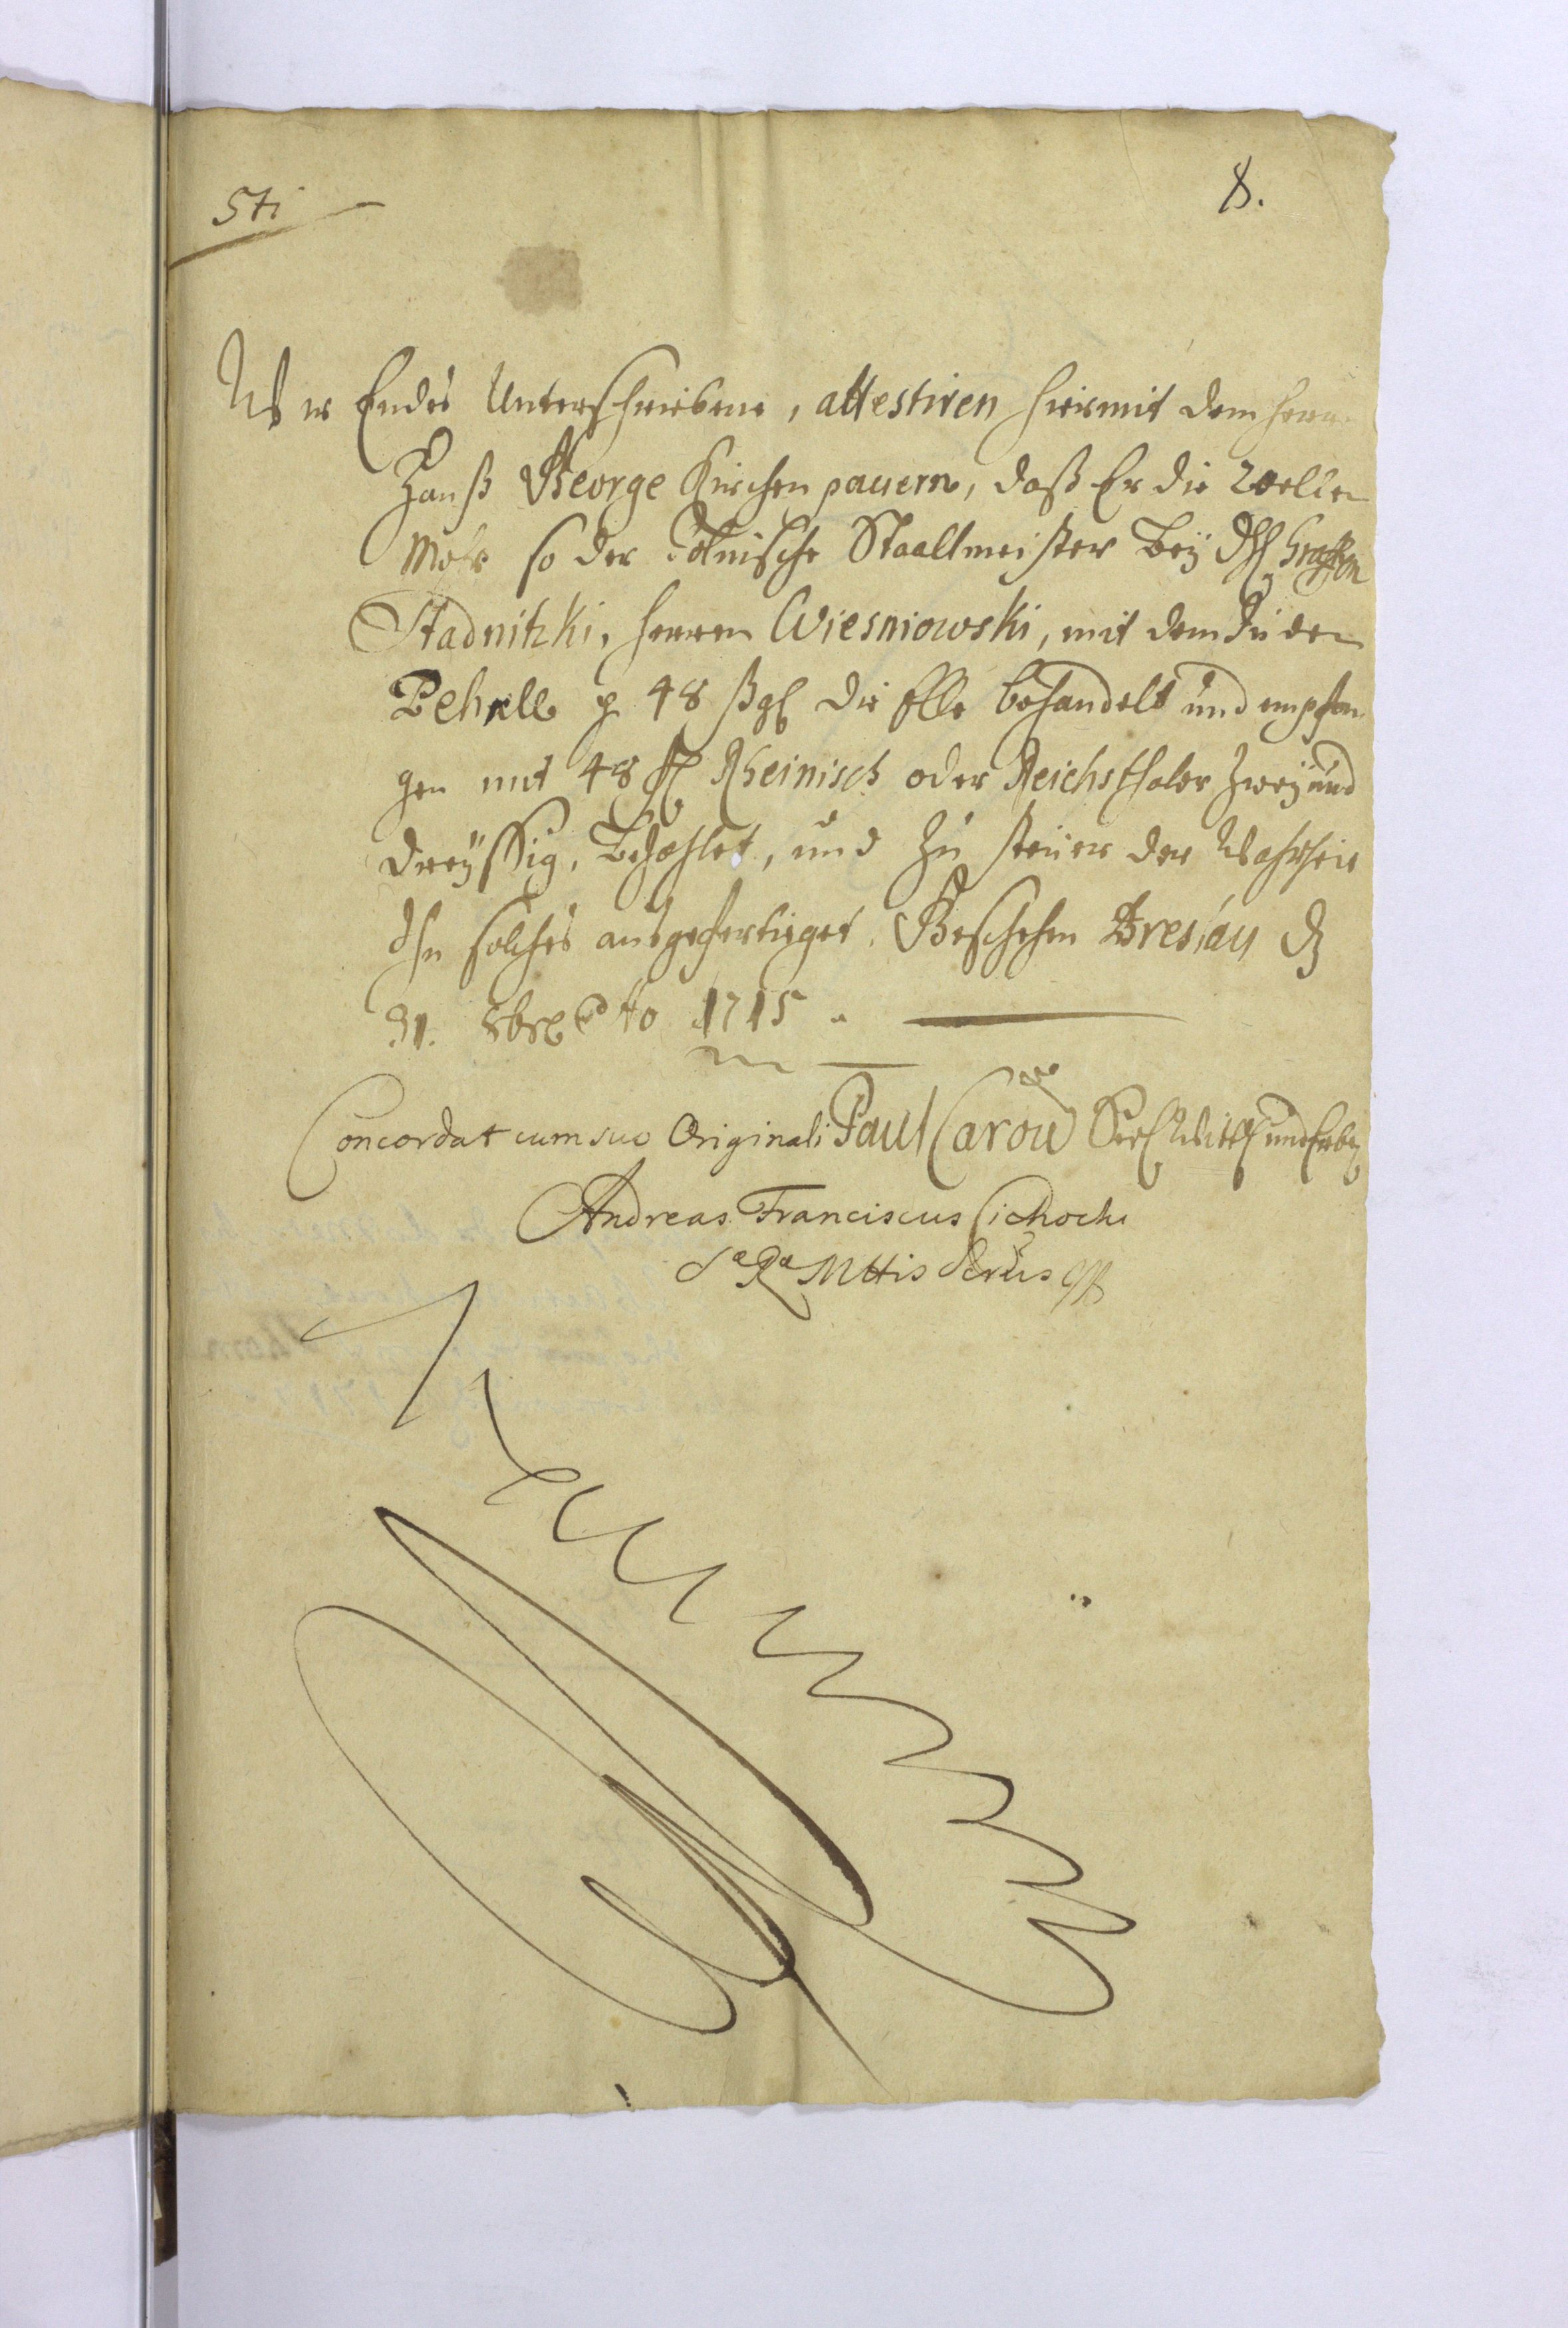 5ti
8.
Wir Endes Unterschriebene, attestiren hiermit dem Herrn
Hanß George Kirchenpauern, daß Er die 20 ellen
Mohr so der Polnische Staallmeister Beÿ Graffen
Stadnitzki, Herren Wiesniowski, mit dem Juden
Pehrle p 48 ßgl die Elle behandelt und empfan
gen mit 48 fl Rheinisch oder Reichsthaler zweÿ und
dreÿssig, Bezahlet, und zu steuer der Wahrheit
Ihn solches ausgefertiget. Geschehen Breslau d
31. 8br Ao 1715.
Concordat cum suo Originali Paul Carow Seel Witt und Erben
Andreas Franciscus Cichocki
Sæ Ræ Mttis Serus